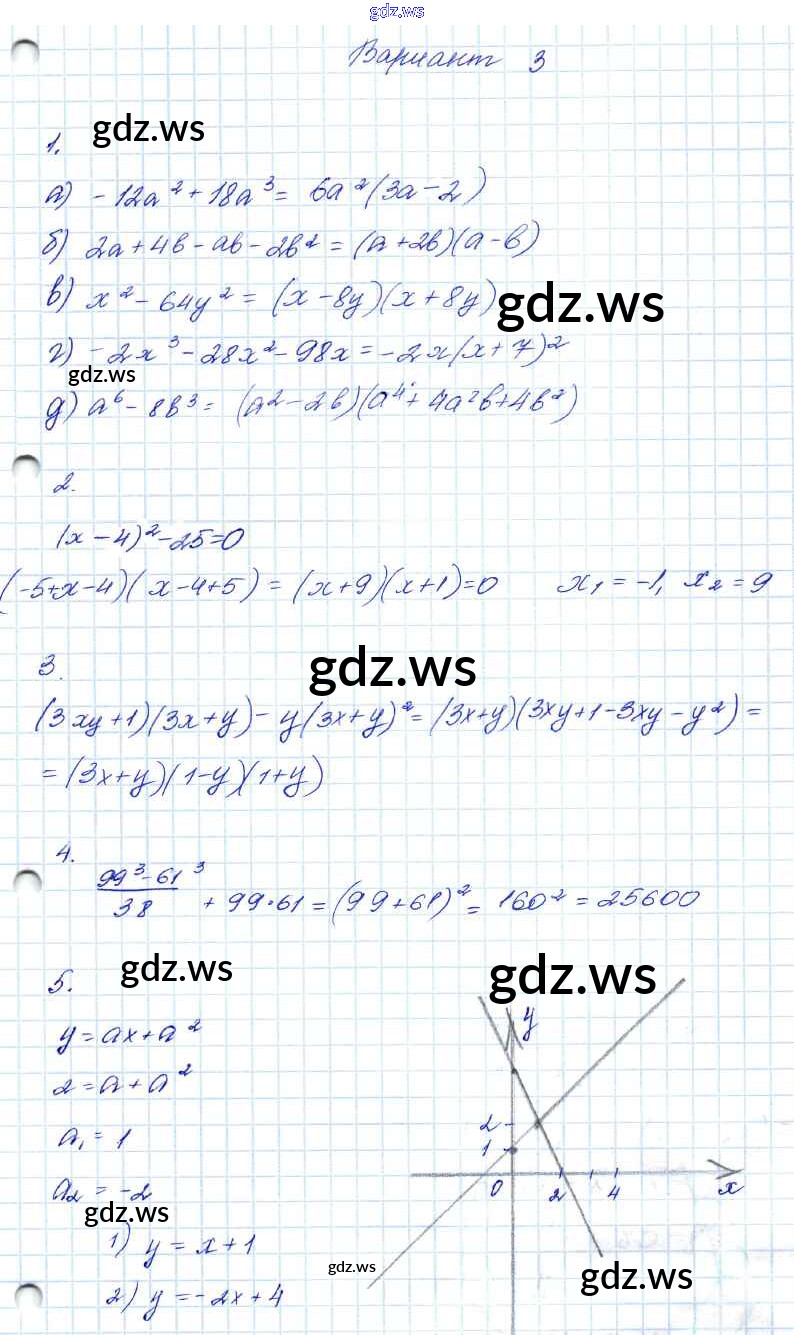 gdz.ws
Вариант 3
gdz.ws
1.
а) -12a² + 18a³ = 6a²(3a - 2)
б) 2a + 4b - ab - 2b² = (a + 2b)(a - b)
в) x² - 64y² = (x - 8y)(x + 8y)
gdz.ws
г) -2x³ - 28x² - 98x = -2x(x + 7)²
gdz.ws
д) a⁶ - 8b³ = (a² - 2b)(a⁴ + 4a²b + 4b²)
2.
(x - 4)² - 25 = 0
(-5+x-4)(x-4+5) = (x+9)(x+1)=0 x₁ = -1, x₂ = 9
3.
gdz.ws
(3xy+1)(3x+y) - y(3x+y)² = (3x+y)(3xy+1-3xy-y²) =
= (3x+y)(1-y)(1+y)
4.
(99³-61³)/38 + 99·61 = (99+61)² = 160² = 25600
gdz.ws
gdz.ws
5.
y = ax + a²
2 = a + a²
a₁ = 1
a₂ = -2
gdz.ws
1) y = x + 1
2) y = -2x + 4
y
2
1
0 2 4 x
gdz.ws
gdz.ws